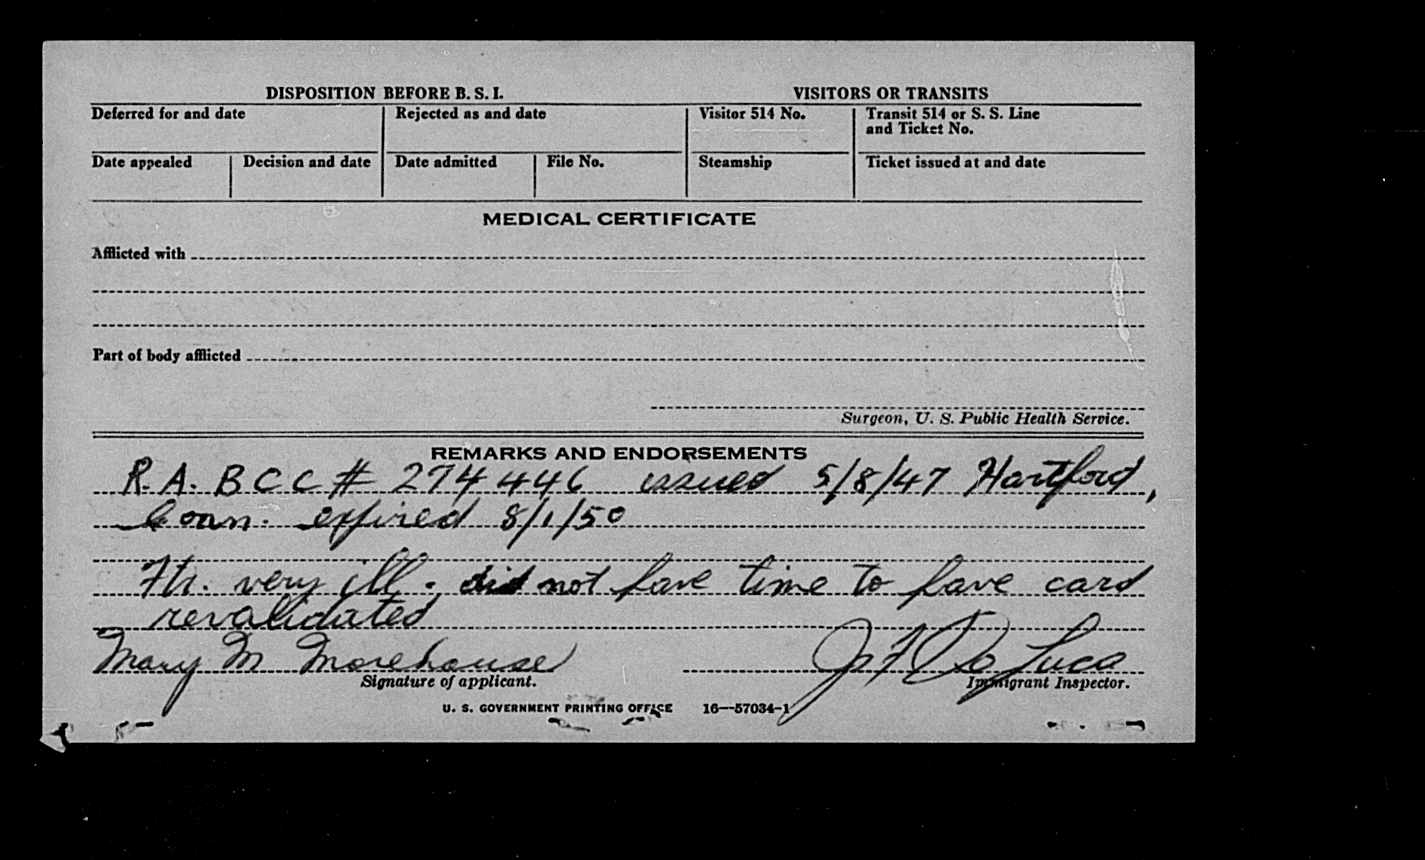 DISPOSITION BEFORE B. S. I. VISITORS OR TRANSITS
Deferred for and date Rejected as and date Visitor 514 No. Transit 514 or S. S. Line
and Ticket No.
Date appealed Decision and date Date admitted File No. Steamship Ticket issued at and date
MEDICAL CERTIFICATE
Afflicted with
Part of body afflicted
Surgeon, U. S. Public Health Service.
REMARKS AND ENDORSEMENTS
R.A. BCC # 274446 issued 5/8/47 Hartford,
Conn. expired 8/1/50
Fth. very ill. did not have time to have card
revalidated
Mary M Morehouse J F De Luca
Signature of applicant. Immigrant Inspector.
U. S. GOVERNMENT PRINTING OFFICE 16—57034-1